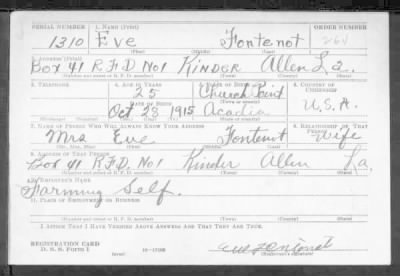 SERIAL NUMBER 1. NAME (Print) ORDER NUMBER
1310 Eve Fontenot 264
(First) (Middle) (Last)
2. ADDRESS (Print)
Box 41 R.F.D. No1 Kinder Allen La.
(Number and street or R. F. D. number) (Town) (County) (State)
3. TELEPHONE 4. AGE IN YEARS 5. PLACE OF BIRTH 6. COUNTRY OF CITIZENSHIP
25 Church Point
DATE OF BIRTH (Town or county)
Oct 28 1915 Acadia U.S.A.
(Exchange) (Number) (Mo.) (Day) (Yr.) (State or country)
7. NAME OF PERSON WHO WILL ALWAYS KNOW YOUR ADDRESS 8. RELATIONSHIP OF THAT PERSON
Mrs Eve Fontenot Wife
(Mr., Mrs., Miss) (First) (Middle) (Last)
9. ADDRESS OF THAT PERSON
Box 41 R.F.D. No1 Kinder Allen La.
(Number and street or R. F. D. number) (Town) (County) (State)
10. EMPLOYER'S NAME
Farming Self.
11. PLACE OF EMPLOYMENT OR BUSINESS
(Number and street or R. F. D. number) (Town) (County) (State)
I AFFIRM THAT I HAVE VERIFIED ABOVE ANSWERS AND THAT THEY ARE TRUE.
REGISTRATION CARD
D. S. S. Form 1 (over) 16-17105 Eve Fontenot
(Registrant's signature)